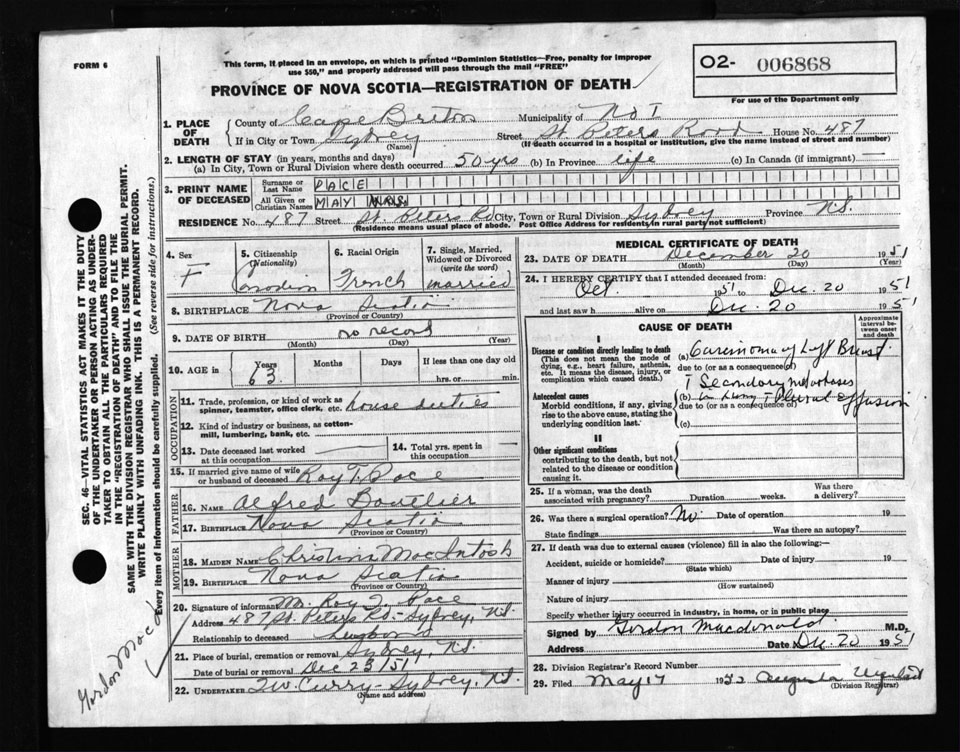 FORM 6
This form, if placed in an envelope, on which is printed "Dominion Statistics—Free, penalty for improper
use $50," and properly addressed will pass through the mail "FREE"
O2- 006868
For use of the Department only
PROVINCE OF NOVA SCOTIA—REGISTRATION OF DEATH
1. PLACE OF DEATH
County of Cape Breton Municipality of No 1
If in City or Town Sydney Street St. Peters Road House No. 487
(Name) (If death occurred in a hospital or institution, give the name instead of street and number)
2. LENGTH OF STAY (in years, months and days)
(a) In City, Town or Rural Division where death occurred 50 yrs (b) In Province life (c) In Canada (if immigrant) —
3. PRINT NAME OF DECEASED
Surname or Last Name PACE
All Given or Christian Names MAY MRS.
RESIDENCE No. 487 Street St. Peters Rd City, Town or Rural Division Sydney Province N.S.
(Residence means usual place of abode. Post Office Address for residents in rural parts not sufficient)
4. Sex F
5. Citizenship (Nationality) Canadian
6. Racial Origin French
7. Single, Married, Widowed or Divorced (write the word) married
8. BIRTHPLACE Nova Scotia
(Province or Country)
9. DATE OF BIRTH no record
(Month) (Day) (Year)
10. AGE in Years 63 Months Days If less than one day old
hrs. or min.
OCCUPATION
11. Trade, profession, or kind of work as
spinner, teamster, office clerk, etc. house duties
12. Kind of industry or business, as cotton-
mill, lumbering, bank, etc.
13. Date deceased last worked at this occupation
14. Total yrs. spent in this occupation
15. If married give name of wife
or husband of deceased Roy T. Pace
FATHER
16. NAME Alfred
17. BIRTHPLACE Nova Scotia
MOTHER
18. MAIDEN NAME Christina MacIntosh
19. BIRTHPLACE Nova Scotia
(Province or Country)
20. Signature of informant M. Roy T. Pace
Address 487 St. Peters Rd.- Sydney, N.S.
Relationship to deceased
21. Place of burial, cremation or removal Sydney, N.S.
Date of burial or removal Dec 23/51
22. UNDERTAKER T.W. Curry - Sydney, N.S.
(Name and address)
MEDICAL CERTIFICATE OF DEATH
23. DATE OF DEATH December 20 1951
(Month) (Day) (Year)
24. I HEREBY CERTIFY that I attended deceased from:
Oct. 1951 to Dec. 20 1951
and last saw h alive on Dec. 20 1951
CAUSE OF DEATH
Approximate interval between onset and death
I
Disease or condition directly leading to death (a) Carcinoma of Left Breast.
(This does not mean the mode of
dying, e.g., heart failure, asthenia,
etc. It means the disease, injury, or
complication which caused death.)
due to (or as a consequence of)
Secondary metastases
Antecedent causes (b) in lung Plural effusion
Morbid conditions, if any, giving
rise to the above cause, stating the
underlying condition last.
due to (or as a consequence of)
(c)
II
Other significant conditions
contributing to the death, but not
related to the disease or condition
causing it.
25. If a woman, was the death
associated with pregnancy? Duration weeks. Was there a delivery?
26. Was there a surgical operation? No Date of operation 19
State findings Was there an autopsy?
27. If death was due to external causes (violence) fill in also the following:—
Accident, suicide or homicide? Date of injury 19
(State which)
Manner of injury
(How sustained)
Nature of injury
Specify whether injury occurred in industry, in home, or in public place
Signed by Gordon Macdonald. M.D.
Address Date Dec. 20 1951
28. Division Registrar's Record Number
29. Filed May 17 1952 Augusta
(Division Registrar)
SEC. 46—VITAL STATISTICS ACT MAKES IT THE DUTY
OF THE UNDERTAKER OR PERSON ACTING AS UNDER-
TAKER TO OBTAIN ALL THE PARTICULARS REQUIRED
IN THE "REGISTRATION OF DEATH" AND TO FILE THE
SAME WITH THE DIVISION REGISTRAR WHO SHALL ISSUE THE BURIAL PERMIT.
WRITE PLAINLY WITH UNFADING INK. THIS IS A PERMANENT RECORD.
Every item of information should be carefully supplied. (See reverse side for instructions.)
Gordon Macd